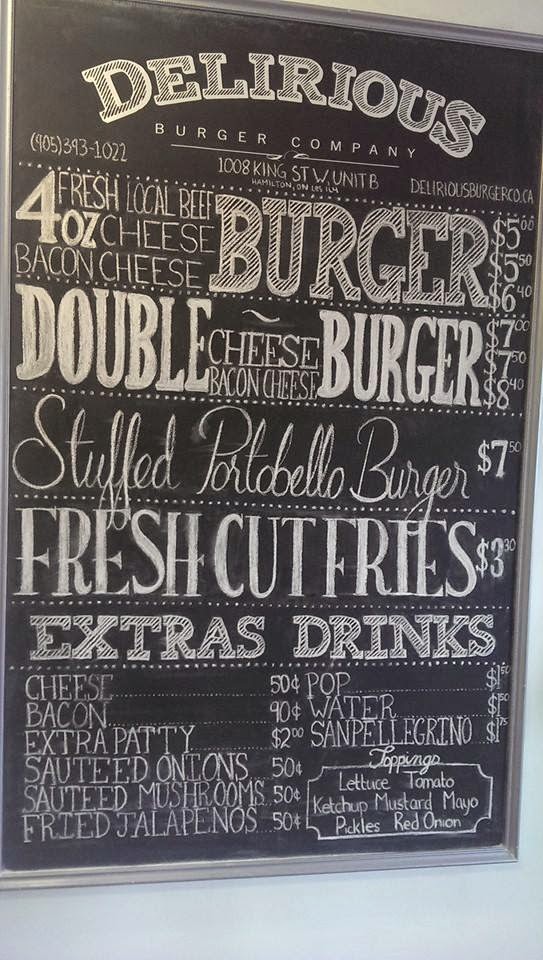 DELIRIOUS
BURGER COMPANY
(905)393-1022
1008 KING ST W, UNIT B
HAMILTON, ON L8S 1L4
DELIRIOUSBURGERCO.CA
4 OZ FRESH LOCAL BEEF BURGER $5.00
CHEESE $5.50
BACON CHEESE $6.40
DOUBLE ~ BURGER $7.00
CHEESE $7.50
BACON CHEESE $8.40
Stuffed Portobello Burger $7.50
FRESH CUT FRIES $3.30
EXTRAS DRINKS
CHEESE 50¢
BACON 90¢
EXTRA PATTY $2.00
SAUTEED ONIONS 50¢
SAUTEED MUSHROOMS 50¢
FRIED JALAPENOS 50¢
POP $1.50
WATER $1.50
SANPELLEGRINO $1.75
Toppings
Lettuce Tomato
Ketchup Mustard Mayo
Pickles Red Onion